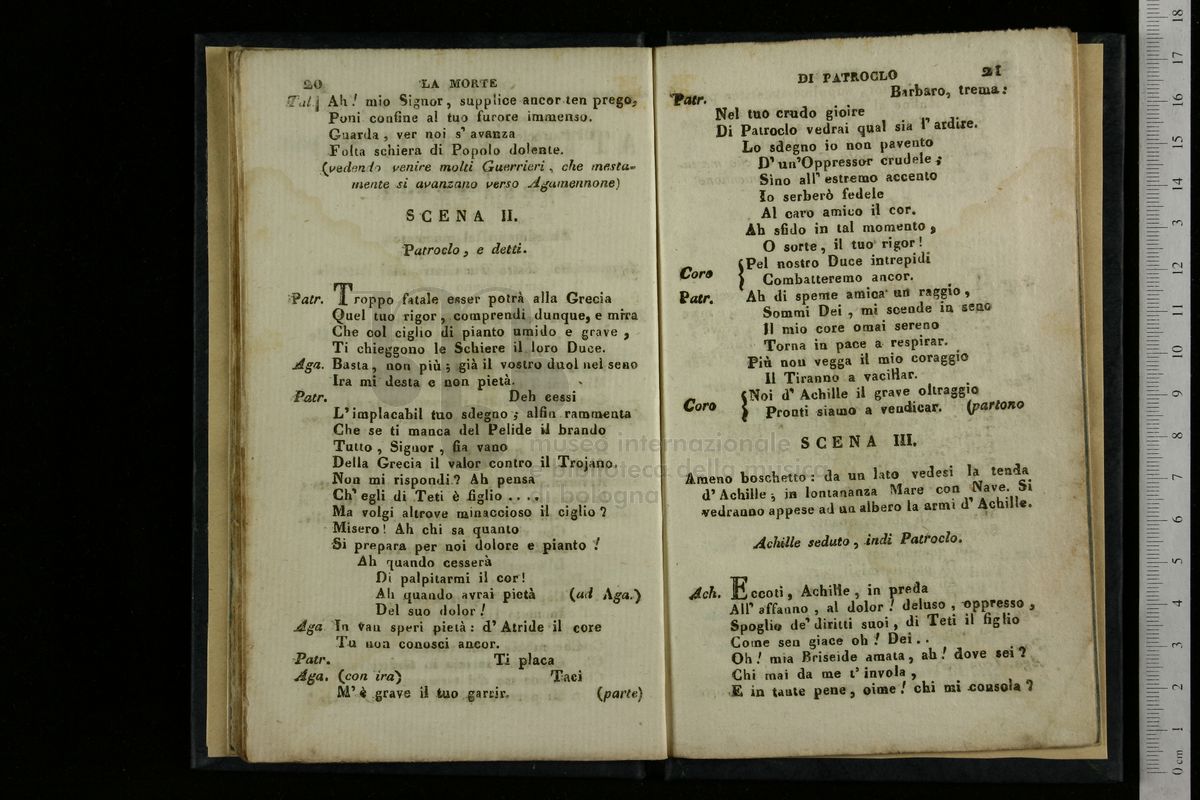 20 LA MORTE
Tal. Ah! mio Signor, supplice ancor ten prego,
Poni confine al tuo furore immenso.
Guarda, ver noi s' avanza
Folta schiera di Popolo dolente.
(vedendo venire molti Guerrieri, che mesta-
mente si avanzano verso Agamennone)
SCENA II.
Patroclo, e detti.
Patr. Troppo fatale esser potrà alla Grecia
Quel tuo rigor, comprendi dunque, e mira
Che col ciglio di pianto umido e grave,
Ti chieggono le Schiere il loro Duce.
Aga. Basta, non più; già il vostro duol nel seno
Ira mi desta e non pietà.
Patr. Deh cessi
L'implacabil tuo sdegno; alfin rammenta
Che se ti manca del Pelide il brando
Tutto, Signor, fia vano
Della Grecia il valor contro il Trojano.
Non mi rispondi? Ah pensa
Ch' egli di Teti è figlio ....
Ma volgi altrove minaccioso il ciglio?
Misero! Ah chi sa quanto
Si prepara per noi dolore e pianto!
Ah quando cesserà
Di palpitarmi il cor!
Ah quando avrai pietà (ad Aga.)
Del suo dolor!
Aga In van speri pietà: d' Atride il core
Tu non conosci ancor.
Patr. Ti placa
Aga. (con ira) Taci
M' è grave il tuo garrir. (parte)
DI PATROCLO 21
Patr. Barbaro, trema:
Nel tuo crudo gioire
Di Patroclo vedrai qual sia l' ardire.
Lo sdegno io non pavento
D' un'Oppressor crudele;
Sino all' estremo accento
Io serberò fedele
Al caro amico il cor.
Ah sfido in tal momento,
O sorte, il tuo rigor!
Coro {Pel nostro Duce intrepidi
Combatteremo ancor.
Patr. Ah di speme amica un raggio,
Sommi Dei, mi scende in seno
Il mio core omai sereno
Torna in pace a respirar.
Più non vegga il mio coraggio
Il Tiranno a vacillar.
Coro {Noi d' Achille il grave oltraggio
Pronti siamo a vendicar. (partono
SCENA III.
Ameno boschetto: da un lato vedesi la tenda
d' Achille; in lontananza Mare con Nave. Si
vedranno appese ad un albero la armi d' Achille.
Achille seduto, indi Patroclo.
Ach. Eccoti, Achille, in preda
All' affanno, al dolor! deluso, oppresso,
Spoglio de' diritti suoi, di Teti il figlio
Come sen giace oh! Dei..
Oh! mia Briseide amata, ah! dove sei?
Chi mai da me t' invola,
E in tante pene, oime! chi mi consola?
museo internazionale
e biblioteca della musica
di bologna
0 cm 1 2 3 4 5 6 7 8 9 10 11 12 13 14 15 16 17 18